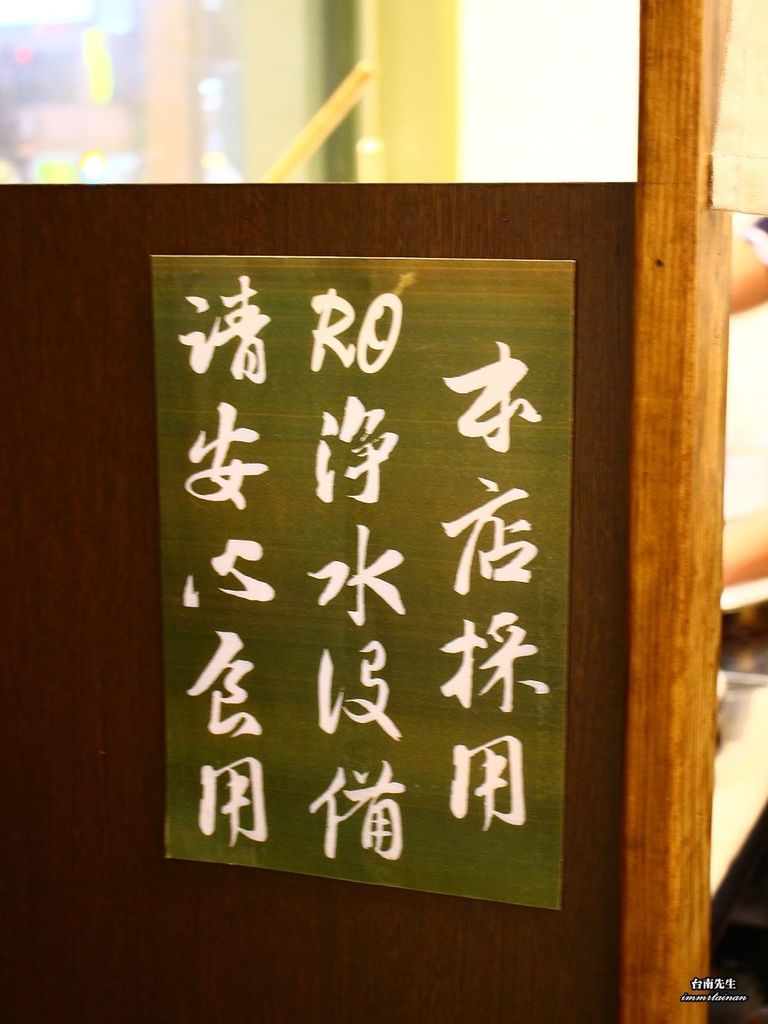 本店採用
RO淨水設備
請安心食用
台南先生
immrtainan